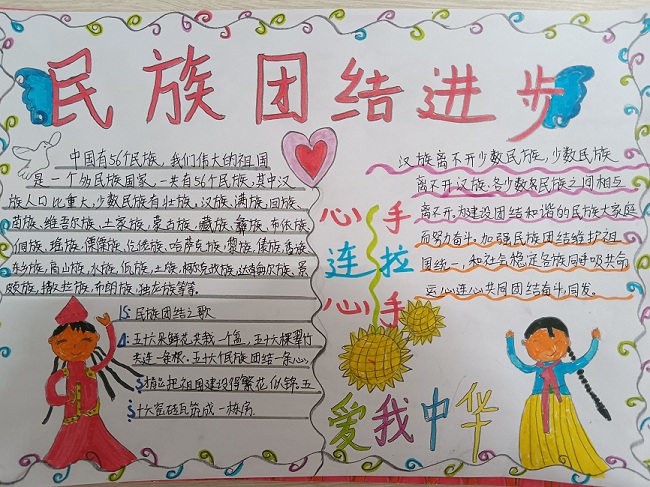 民族团结进步
中国有56个民族，我们伟大的祖国
是一个多民族国家，一共有56个民族，其中汉
族人口比重大，少数民族有壮族，汉族，满族，回族，
苗族，维吾尔族，土家族，蒙古族，藏族，彝族，布依族，
侗族，瑶族，傈僳族，仡佬族，哈萨克族，黎族，傣族，畲族，
东乡族，高山族，水族，佤族，土族，柯尔克孜族，达斡尔族，景
颇族，撒拉族，布朗族，独龙族等等。
民族团结之歌
五十六朵鲜花共栽一个盆，五十六棵翠竹
共连一条根。五十六个民族团结一条心，
把祖国建设得繁花似锦，五
十六瓷砖瓦筑成一栋房
心连心
手拉手
汉族离不开少数民族，少数民族
离不开汉族，各少数民族之间相互
离不开，为建设团结和谐的民族大家庭
而努力奋斗。加强民族团结维护祖
国统一，和社会稳定各族同呼吸共命
运心连心共同团结奋斗同发。
爱我中华